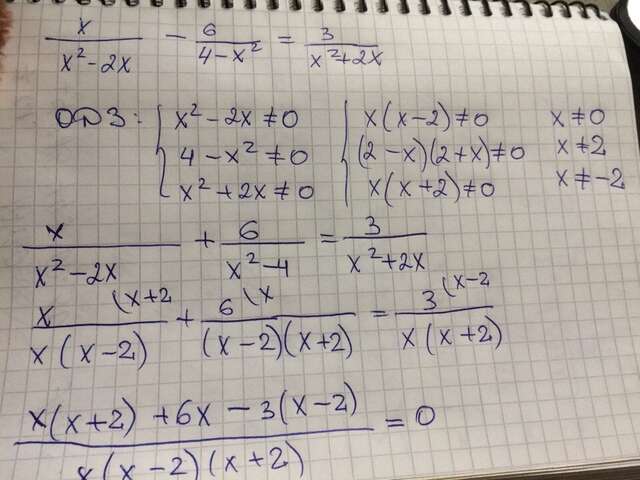 x/(x²-2x) - 6/(4-x²) = 3/(x²+2x)
ОДЗ: { x²-2x≠0 { x(x-2)≠0 x≠0
4-x²≠0 (2-x)(2+x)≠0 x≠2
x²+2x≠0 x(x+2)≠0 x≠-2
x/(x²-2x) + 6/(x²-4) = 3/(x²+2x)
x (x+2 / x(x-2) + 6 (x / (x-2)(x+2) = 3 (x-2 / x(x+2)
(x(x+2)+6x-3(x-2))/(x(x-2)(x+2)) = 0